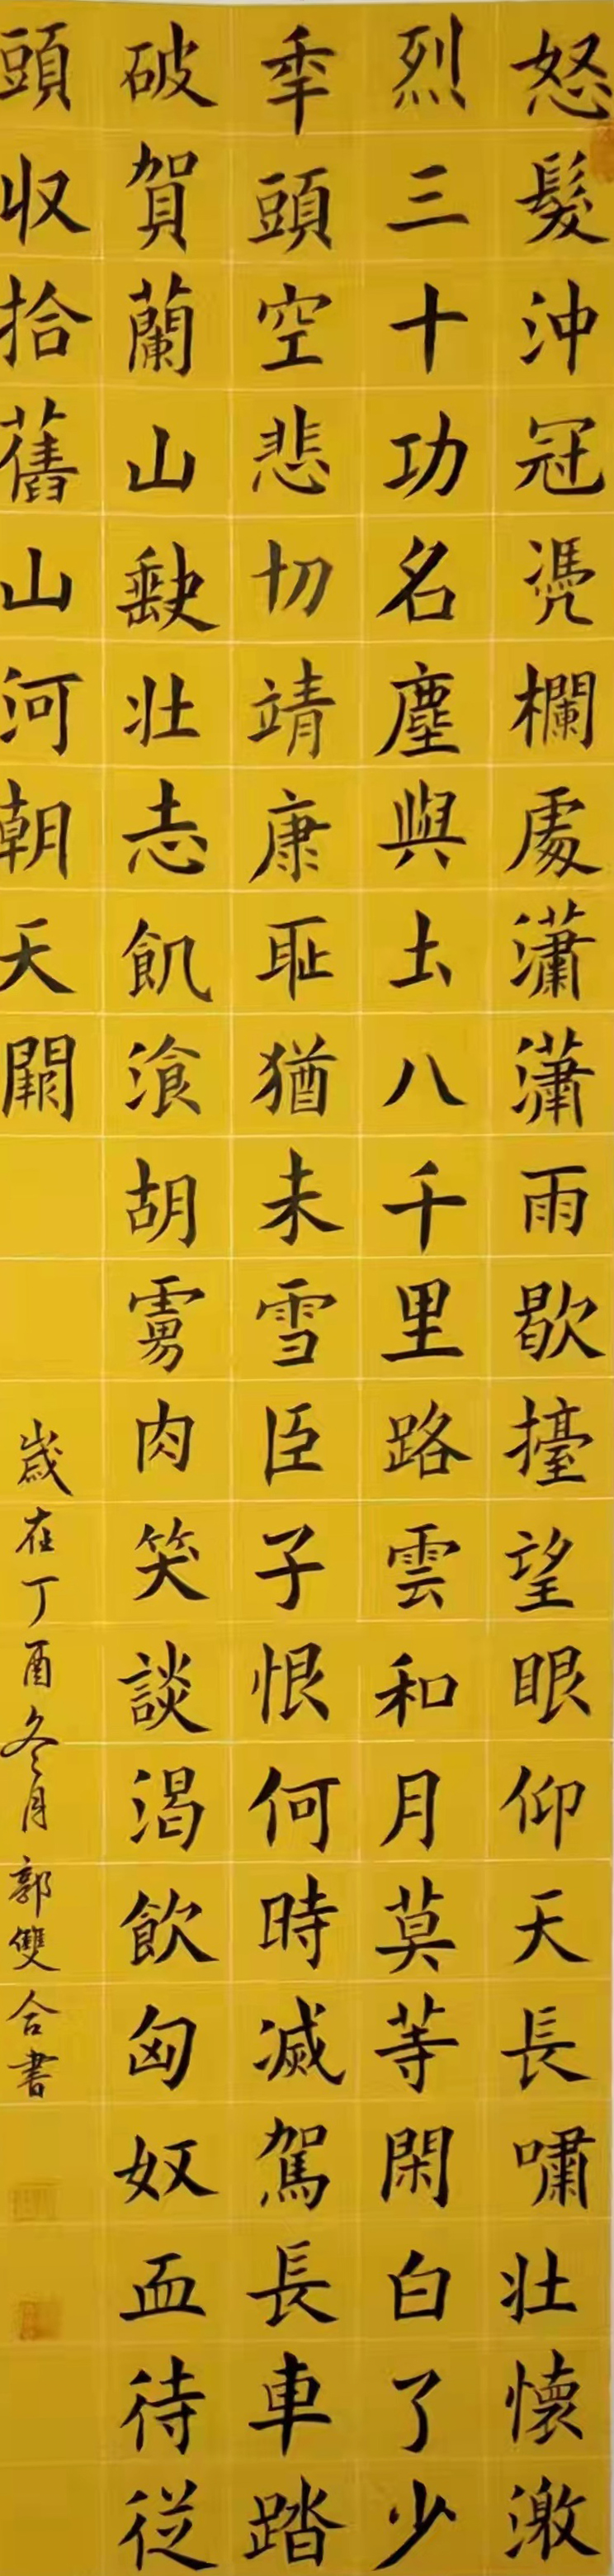 怒髮沖冠凴欄處瀟瀟雨歇擡望眼仰天長嘯壯懷激
烈三十功名塵與土八千里路雲和月莫等閑白了少
秊頭空悲切靖康恥猶未雪臣子恨何時滅駕長車踏
破賀蘭山缺壯志飢飡胡虜肉笑談渴飲匈奴血待從
頭收拾舊山河朝天闕
歲在丁酉冬月郭雙合書